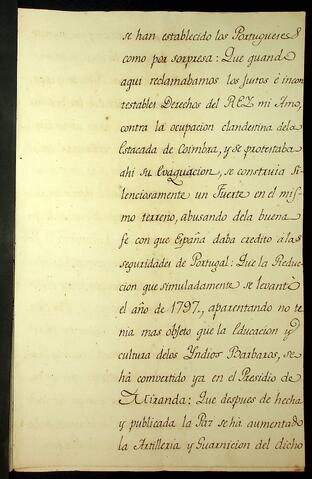 se han establecido los Portugueses
como por sorpresa: Que quando
aqui reclamabamos los justos é incon
testables Derechos del REY mi Amo,
contra la ocupacion clandestina dela
Estacada de Coimbra, y se protestaba
ahi su Evaquacion, se construia si
lenciosamente un Fuerte en el mis
mo terreno, abusando dela buena
fe con que España daba credito á las
seguridades de Portugal: Que la Reduc
cion que simuladamente se levantó
el año de 1797., aparentando no te
nia mas objeto que la Educacion y
cultura delos Yndios Barbaros, se
há comvertido ya en el Presidio de
Miranda: Que despues de hecha
y publicada la Paz se há aumentado
la Artilleria y Guarnicion del dicho